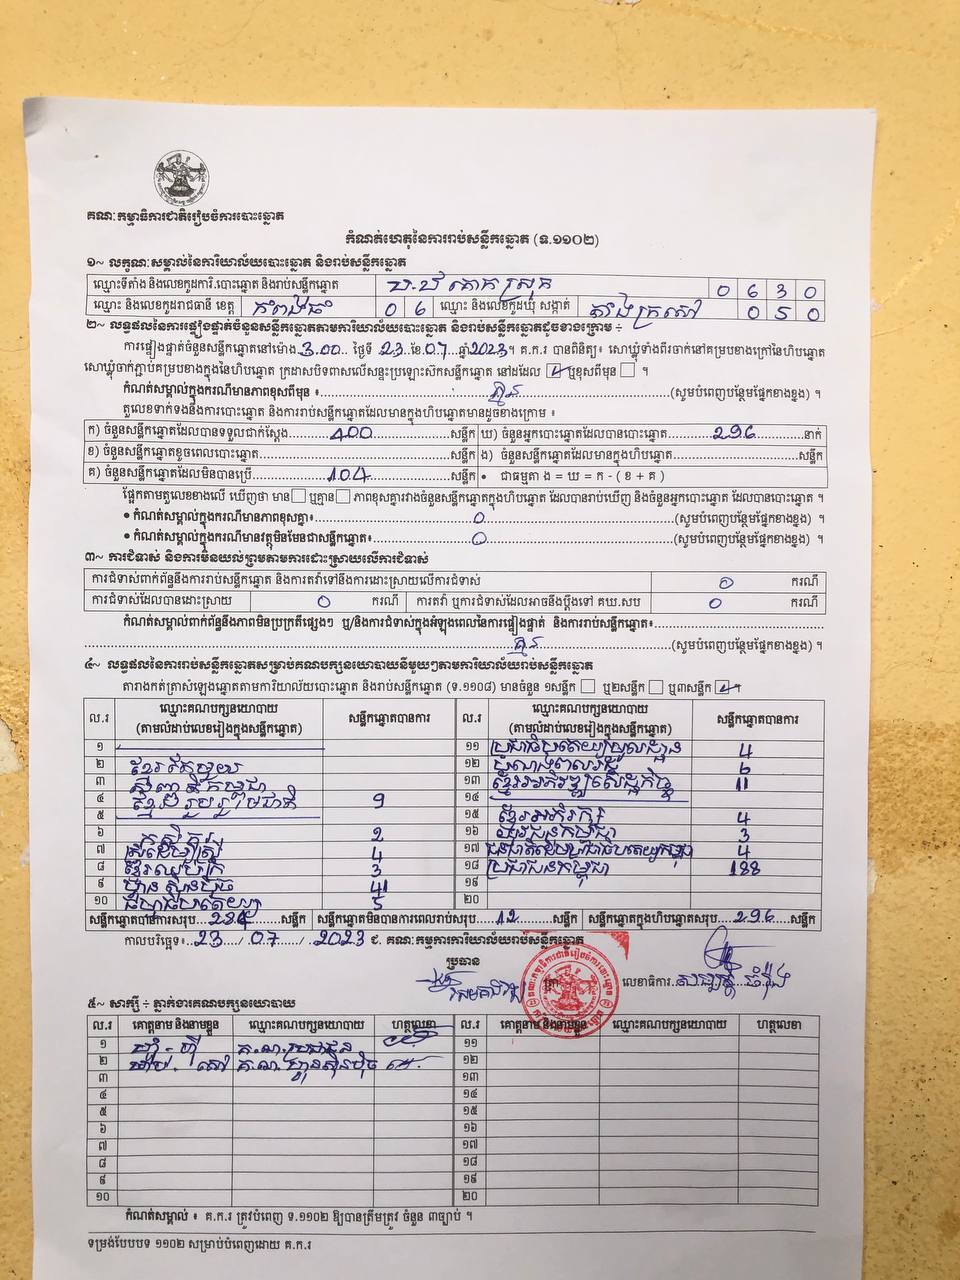 គណៈកម្មាធិការជាតិរៀបចំការបោះឆ្នោត
កំណត់ហេតុនៃការរាប់សន្លឹកឆ្នោត (ទ.១១០២)
១~ លក្ខណៈសម្គាល់នៃការិយាល័យបោះឆ្នោត និងរាប់សន្លឹកឆ្នោត
ឈ្មោះទីតាំង និងលេខកូដការិ.បោះឆ្នោត និងរាប់សន្លឹកឆ្នោត 0 6 3 0
ឈ្មោះ និងលេខកូដរាជធានី ខេត្ត កំពង់ធំ 0 6 ឈ្មោះ និងលេខកូដឃុំ សង្កាត់ តាំងក្រសៅ 0 5 0
២~ លទ្ធផលនៃការផ្ទៀងផ្ទាត់ចំនួនសន្លឹកឆ្នោតតាមការិយាល័យបោះឆ្នោត និងរាប់សន្លឹកឆ្នោតដូចខាងក្រោម ÷
ការផ្ទៀងផ្ទាត់ចំនួនសន្លឹកឆ្នោតនៅម៉ោង 3.00 ថ្ងៃទី 23 ខែ 07 ឆ្នាំ 2023 ។ គ.ក.រ បានពិនិត្យ៖ សោឃ្លុំទាំងពីរចាក់នៅគម្របខាងក្រៅនៃហិបឆ្នោត
សោឃ្លុំចាក់ភ្ជាប់គម្របខាងក្នុងនៃហិបឆ្នោត ក្រដាសបិទពាសលើសន្ទះប្រឡោះស៊កសន្លឹកឆ្នោត នៅដដែល ឬខុសពីមុន ។
កំណត់សម្គាល់ក្នុងករណីមានភាពខុសពីមុន ៖ គ្មាន (សូមបំពេញបន្ថែមផ្នែកខាងខ្នង) ។
តួលេខទាក់ទងនឹងការបោះឆ្នោត និងការរាប់សន្លឹកឆ្នោតដែលមានក្នុងហិបឆ្នោតមានដូចខាងក្រោម ៖
ក) ចំនួនសន្លឹកឆ្នោតដែលបានទទួលជាក់ស្តែង 400 សន្លឹក ឃ) ចំនួនអ្នកបោះឆ្នោតដែលបានបោះឆ្នោត 296 នាក់
ខ) ចំនួនសន្លឹកឆ្នោតខូចពេលបោះឆ្នោត សន្លឹក ង) ចំនួនសន្លឹកឆ្នោតដែលមានក្នុងហិបឆ្នោត សន្លឹក
គ) ចំនួនសន្លឹកឆ្នោតដែលមិនបានប្រើ 104 សន្លឹក • ជាធម្មតា ង = ឃ = ក - ( ខ + គ )
ផ្អែកតាមតួលេខខាងលើ ឃើញថា មាន ឬគ្មាន ភាពខុសគ្នារវាងចំនួនសន្លឹកឆ្នោតក្នុងហិបឆ្នោត ដែលបានរាប់ឃើញ និងចំនួនអ្នកបោះឆ្នោត ដែលបានបោះឆ្នោត ។
• កំណត់សម្គាល់ក្នុងករណីមានភាពខុសគ្នា៖ 0 (សូមបំពេញបន្ថែមផ្នែកខាងខ្នង) ។
• កំណត់សម្គាល់ក្នុងករណីមានវត្ថុមិនមែនជាសន្លឹកឆ្នោត៖ 0 (សូមបំពេញបន្ថែមផ្នែកខាងខ្នង) ។
៣~ ការជំទាស់ និងការមិនយល់ព្រមតាមការដោះស្រាយលើការជំទាស់
ការជំទាស់ពាក់ព័ន្ធនឹងការរាប់សន្លឹកឆ្នោត និងការតវ៉ាទៅនឹងការដោះស្រាយលើការជំទាស់ 0 ករណី
ការជំទាស់ដែលបានដោះស្រាយ 0 ករណី ការតវ៉ា ឬការជំទាស់ដែលអាចនឹងប្តឹងទៅ គឃ.សប 0 ករណី
កំណត់សម្គាល់ពាក់ព័ន្ធនឹងភាពមិនប្រក្រតីផ្សេងៗ ឬ/និងការជំទាស់ក្នុងអំឡុងពេលនៃការផ្ទៀងផ្ទាត់ និងការរាប់សន្លឹកឆ្នោត៖
គ្មាន (សូមបំពេញបន្ថែមផ្នែកខាងខ្នង) ។
៤~ លទ្ធផលនៃការរាប់សន្លឹកឆ្នោតសម្រាប់គណបក្សនយោបាយនីមួយៗតាមការិយាល័យរាប់សន្លឹកឆ្នោត
តារាងកត់ត្រាសំឡេងឆ្នោតតាមការិយាល័យបោះឆ្នោត និងរាប់សន្លឹកឆ្នោត (ទ.១១០៨) មានចំនួន ១សន្លឹក ឬ២សន្លឹក ឬ៣សន្លឹក ។
ល.រ ឈ្មោះគណបក្សនយោបាយ (តាមលំដាប់លេខរៀងក្នុងសន្លឹកឆ្នោត) សន្លឹកឆ្នោតបានការ ល.រ ឈ្មោះគណបក្សនយោបាយ (តាមលំដាប់លេខរៀងក្នុងសន្លឹកឆ្នោត) សន្លឹកឆ្នោតបានការ
១ ១១ ប្រជាធិបតេយ្យមូលដ្ឋាន 4
២ ខ្មែរតែមួយ ១២ 6
៣ ១៣ ខ្មែរអភិវឌ្ឍន៍សេដ្ឋកិច្ច 11
៤ ខ្មែររួបរួមជាតិ 9 ១៤
៥ ១៥ ខ្មែរអភិរក្ស 4
៦ កសិករ 2 ១៦ យុវជនកម្ពុជា 3
៧ ស្រីដើម្បីស្ត្រី 4 ១៧ ជនជាតិដើមប្រជាធិបតេយ្យកម្ពុជា 4
៨ ខ្មែរឈប់ក្រ 3 ១៨ ប្រជាជនកម្ពុជា 188
៩ ហ៊្វុនស៊ិនប៉ិច 41 ១៩
១០ ធម្មាធិបតេយ្យ 5 ២០
សន្លឹកឆ្នោតបានការសរុប 284 សន្លឹក សន្លឹកឆ្នោតមិនបានការពេលរាប់សរុប 12 សន្លឹក សន្លឹកឆ្នោតក្នុងហិបឆ្នោតសរុប 296 សន្លឹក
កាលបរិច្ឆេទ៖ 23 / 07 / 2023 ជ. គណៈកម្មការការិយាល័យរាប់សន្លឹកឆ្នោត
ប្រធាន
លេខាធិការ
៥~ សាក្សី ÷ ភ្នាក់ងារគណបក្សនយោបាយ
ល.រ គោត្តនាម និងនាមខ្លួន ឈ្មោះគណបក្សនយោបាយ ហត្ថលេខា ល.រ គោត្តនាម និងនាមខ្លួន ឈ្មោះគណបក្សនយោបាយ ហត្ថលេខា
១ គ.ប.ប្រជាជន ១១
២ គ.ប.ហ៊្វុនស៊ិនប៉ិច ១២
៣ ១៣
៤ ១៤
៥ ១៥
៦ ១៦
៧ ១៧
៨ ១៨
៩ ១៩
១០ ២០
កំណត់សម្គាល់ ៖ គ.ក.រ ត្រូវបំពេញ ទ.១១០២ ឱ្យបានត្រឹមត្រូវ ចំនួន ៣ច្បាប់ ។
ទម្រង់បែបបទ ១១០២ សម្រាប់បំពេញដោយ គ.ក.រ